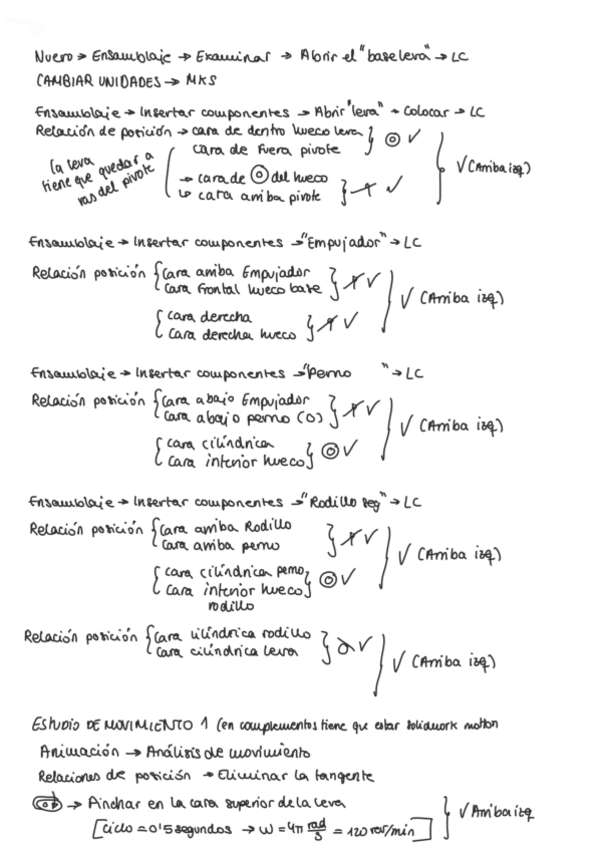 Nuevo → Ensamblaje → Examinar → Abrir el "baseleva" → LC
CAMBIAR UNIDADES → MKS
Ensamblaje → Insertar componentes → Abrir "leva" → Colocar → LC
Relación de posición → cara de dentro hueco leva } ◎ ✓
cara de fuera pivote
(la leva tiene que quedar a ras del pivote
→ cara de ◎ del hueco
↳ cara arriba pivote } ✓
✓ (Arriba izq)
Ensamblaje → Insertar componentes → "Empujador" → LC
Relación posición { Cara arriba Empujador
Cara frontal hueco base } ✓
{ cara derecha
Cara derecha hueco } ✓
✓ (Arriba izq)
Ensamblaje → Insertar componentes → "Perno " → LC
Relación posición { Cara abajo Empujador
Cara abajo perno (O) } ✓
{ cara cilíndrica
Cara interior hueco } ◎ ✓
✓ (Arriba izq)
Ensamblaje → Insertar componentes → "Rodillo seg" → LC
Relación posición { Cara arriba Rodillo
Cara arriba perno } ✓
{ cara cilíndrica perno
Cara interior hueco } ◎ ✓
rodillo
✓ (Arriba izq)
Relación posición { Cara cilíndrica rodillo
Cara cilíndrica leva } ✓
✓ (Arriba izq)
ESTUDIO DE MOVIMIENTO 1 (en complementos tiene que estar solidwork motion
Animación → Análisis de movimiento
Relaciones de posición → Eliminar la tangente
→ Pinchar en la cara superior de la leva
[ciclo = 0'5 segundos → ω = 4π rad/s = 120 rev/min]
✓ Arriba izq